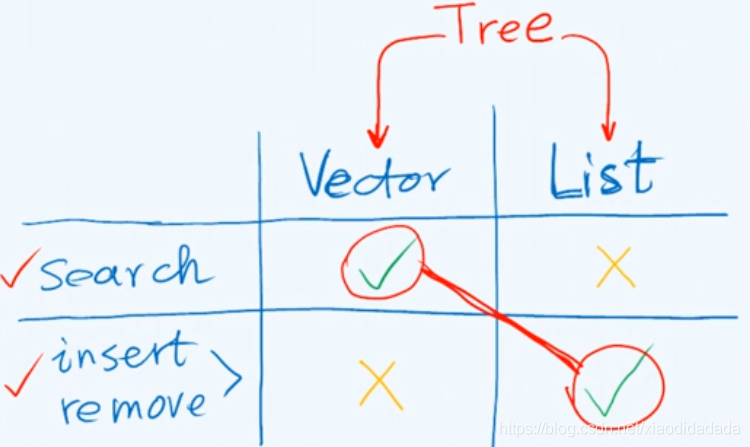 Tree
Vector List
search
insert
remove
https://blog.csdn.net/xiaodidadada